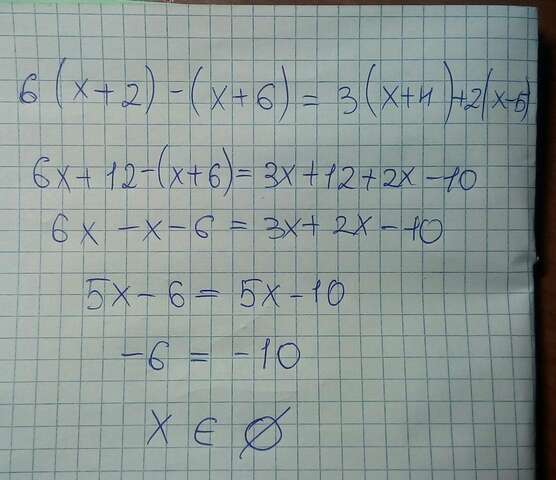 6(x+2)-(x+6)=3(x+4)+2(x-5)
6x+12-(x+6)=3x+12+2x-10
6x-x-6=3x+2x-10
5x-6=5x-10
-6=-10
x∈∅